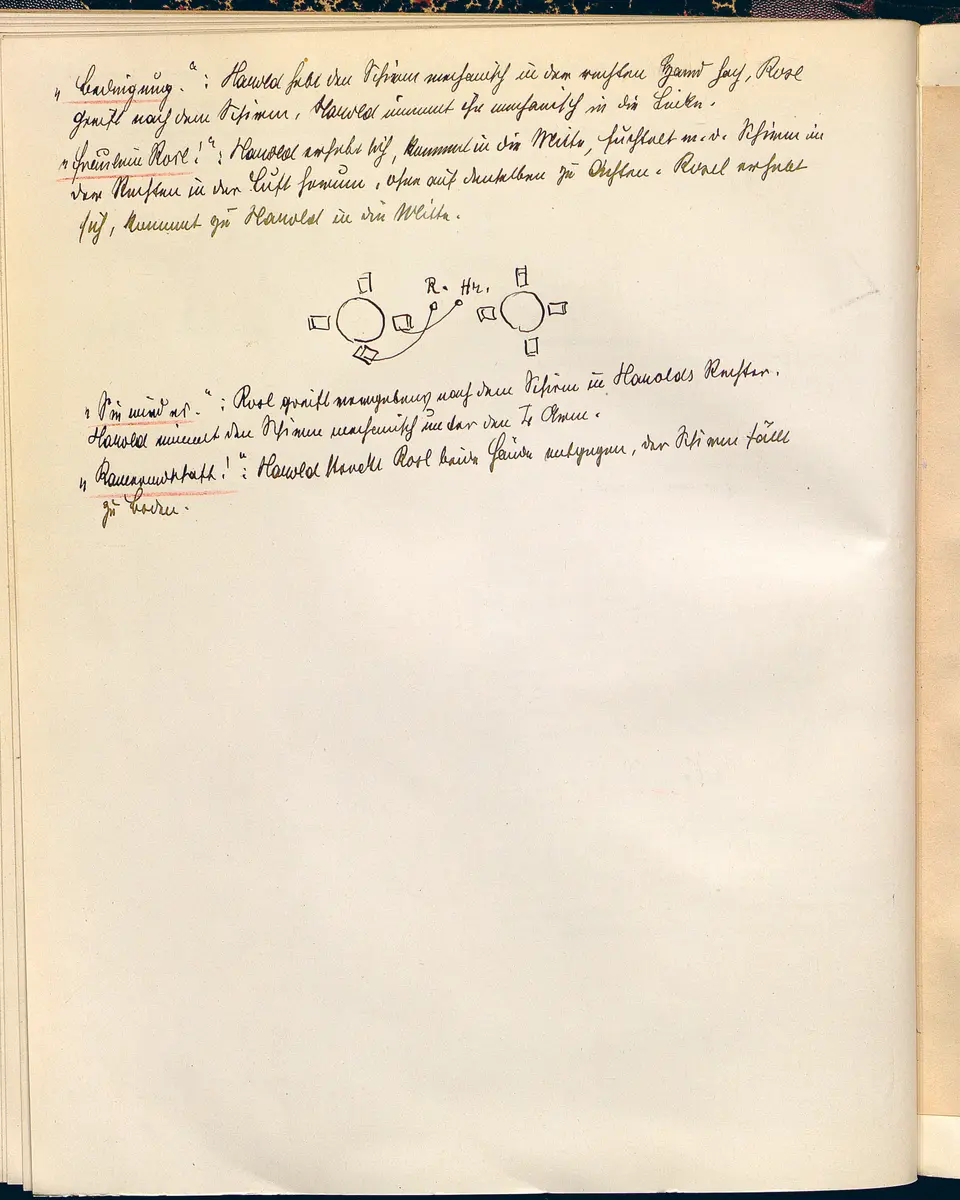 „Bedingung.“: Harold hebt den Schirm mechanisch in der rechten Hand hoch, Rosl
greift nach dem Schirm, Harold nimmt ihn mechanisch in die Linke.
„Fräulein Rosl!“: Harold erhebt sich, kommt in die Mitte, fuchtelt m. d. Schirm in
der Rechten in der Luft herum, ohne auf denselben zu Achten. Rosel erhebt
sich, kommt zu Harold in die Mitte.
R. Hr.
„Sie wird es.“: Rosl greift vergebens nach dem Schirm in Harolds Rechter.
Harold nimmt den Schirm mechanisch unter den Arm.
Harold streckt Rosl beide Hände entgegen, der Schirm fällt
zu Boden.